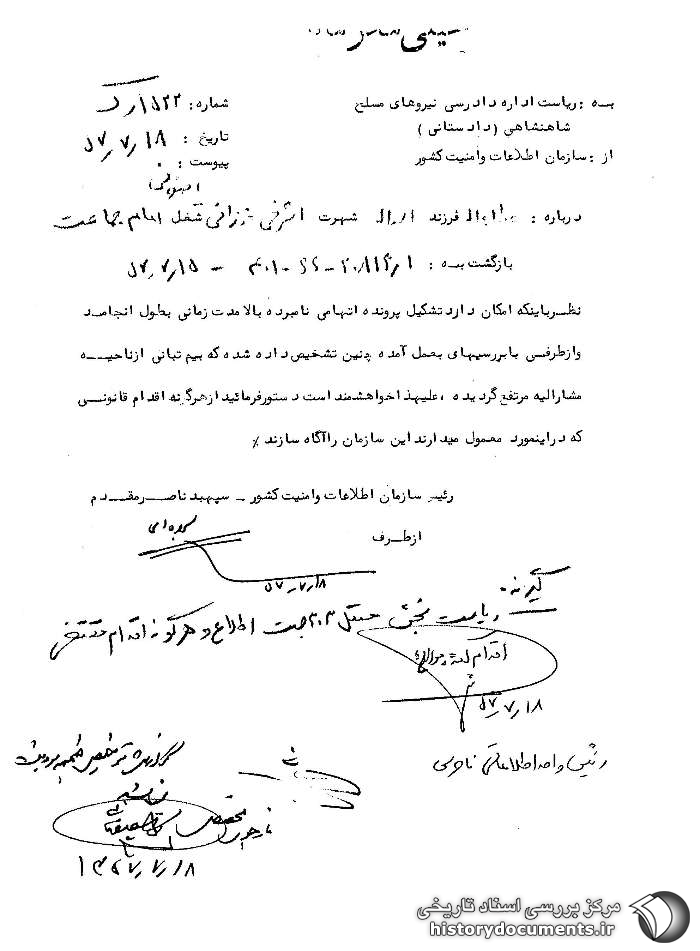 به: ریاست اداره دادرسی نیروهای مسلح
شاهنشاهی (دادستانی)
از: سازمان اطلاعات وامنیت کشور
شماره: ۱۵۲۲
تاریخ: ۵۷/۷/۱۸
پیوست: ۰
درباره: فرزند شهرت اشرفی شغل امام جماعت
بازگشت به: ۵۷/۷/۱۵
نظرباینکه امکان دارد تشکیل پرونده اتهامی نامبرده بالا مدت زمانی بطول انجامد
وازطرفی بابررسیهای بعمل آمده چنین تشخیص داده شده که بیم تبانی ازناحیه
مشارالیه مرتفع گردیده، علیهذا خواهشمند است دستورفرمائید ازهرگونه اقدام قانونی
که دراینمورد معمول میدارند این سازمان راآگاه سازند ٪
رئیس سازمان اطلاعات وامنیت کشور - سپهبد ناصرمقدم
ازطرف
۵۷/۷/۱۸
گیرنده:
ریاست بخش مستقل ۳۰۲ جهت اطلاع و هرگونه اقدام مقتضی
اقدام
۵۷/۷/۱۸
رئیس واحد اطلاعاتی
۱۳۵۷/۷/۱۸
مرکز بررسی اسناد تاریخی
historydocuments.ir